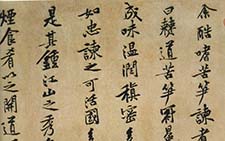 余酷嗜苦笋諫者
曰僰道苦笋冠冕
成味温潤縝密
如忠諫之可活國
是其鍾江山之秀
煙食肴以之開道